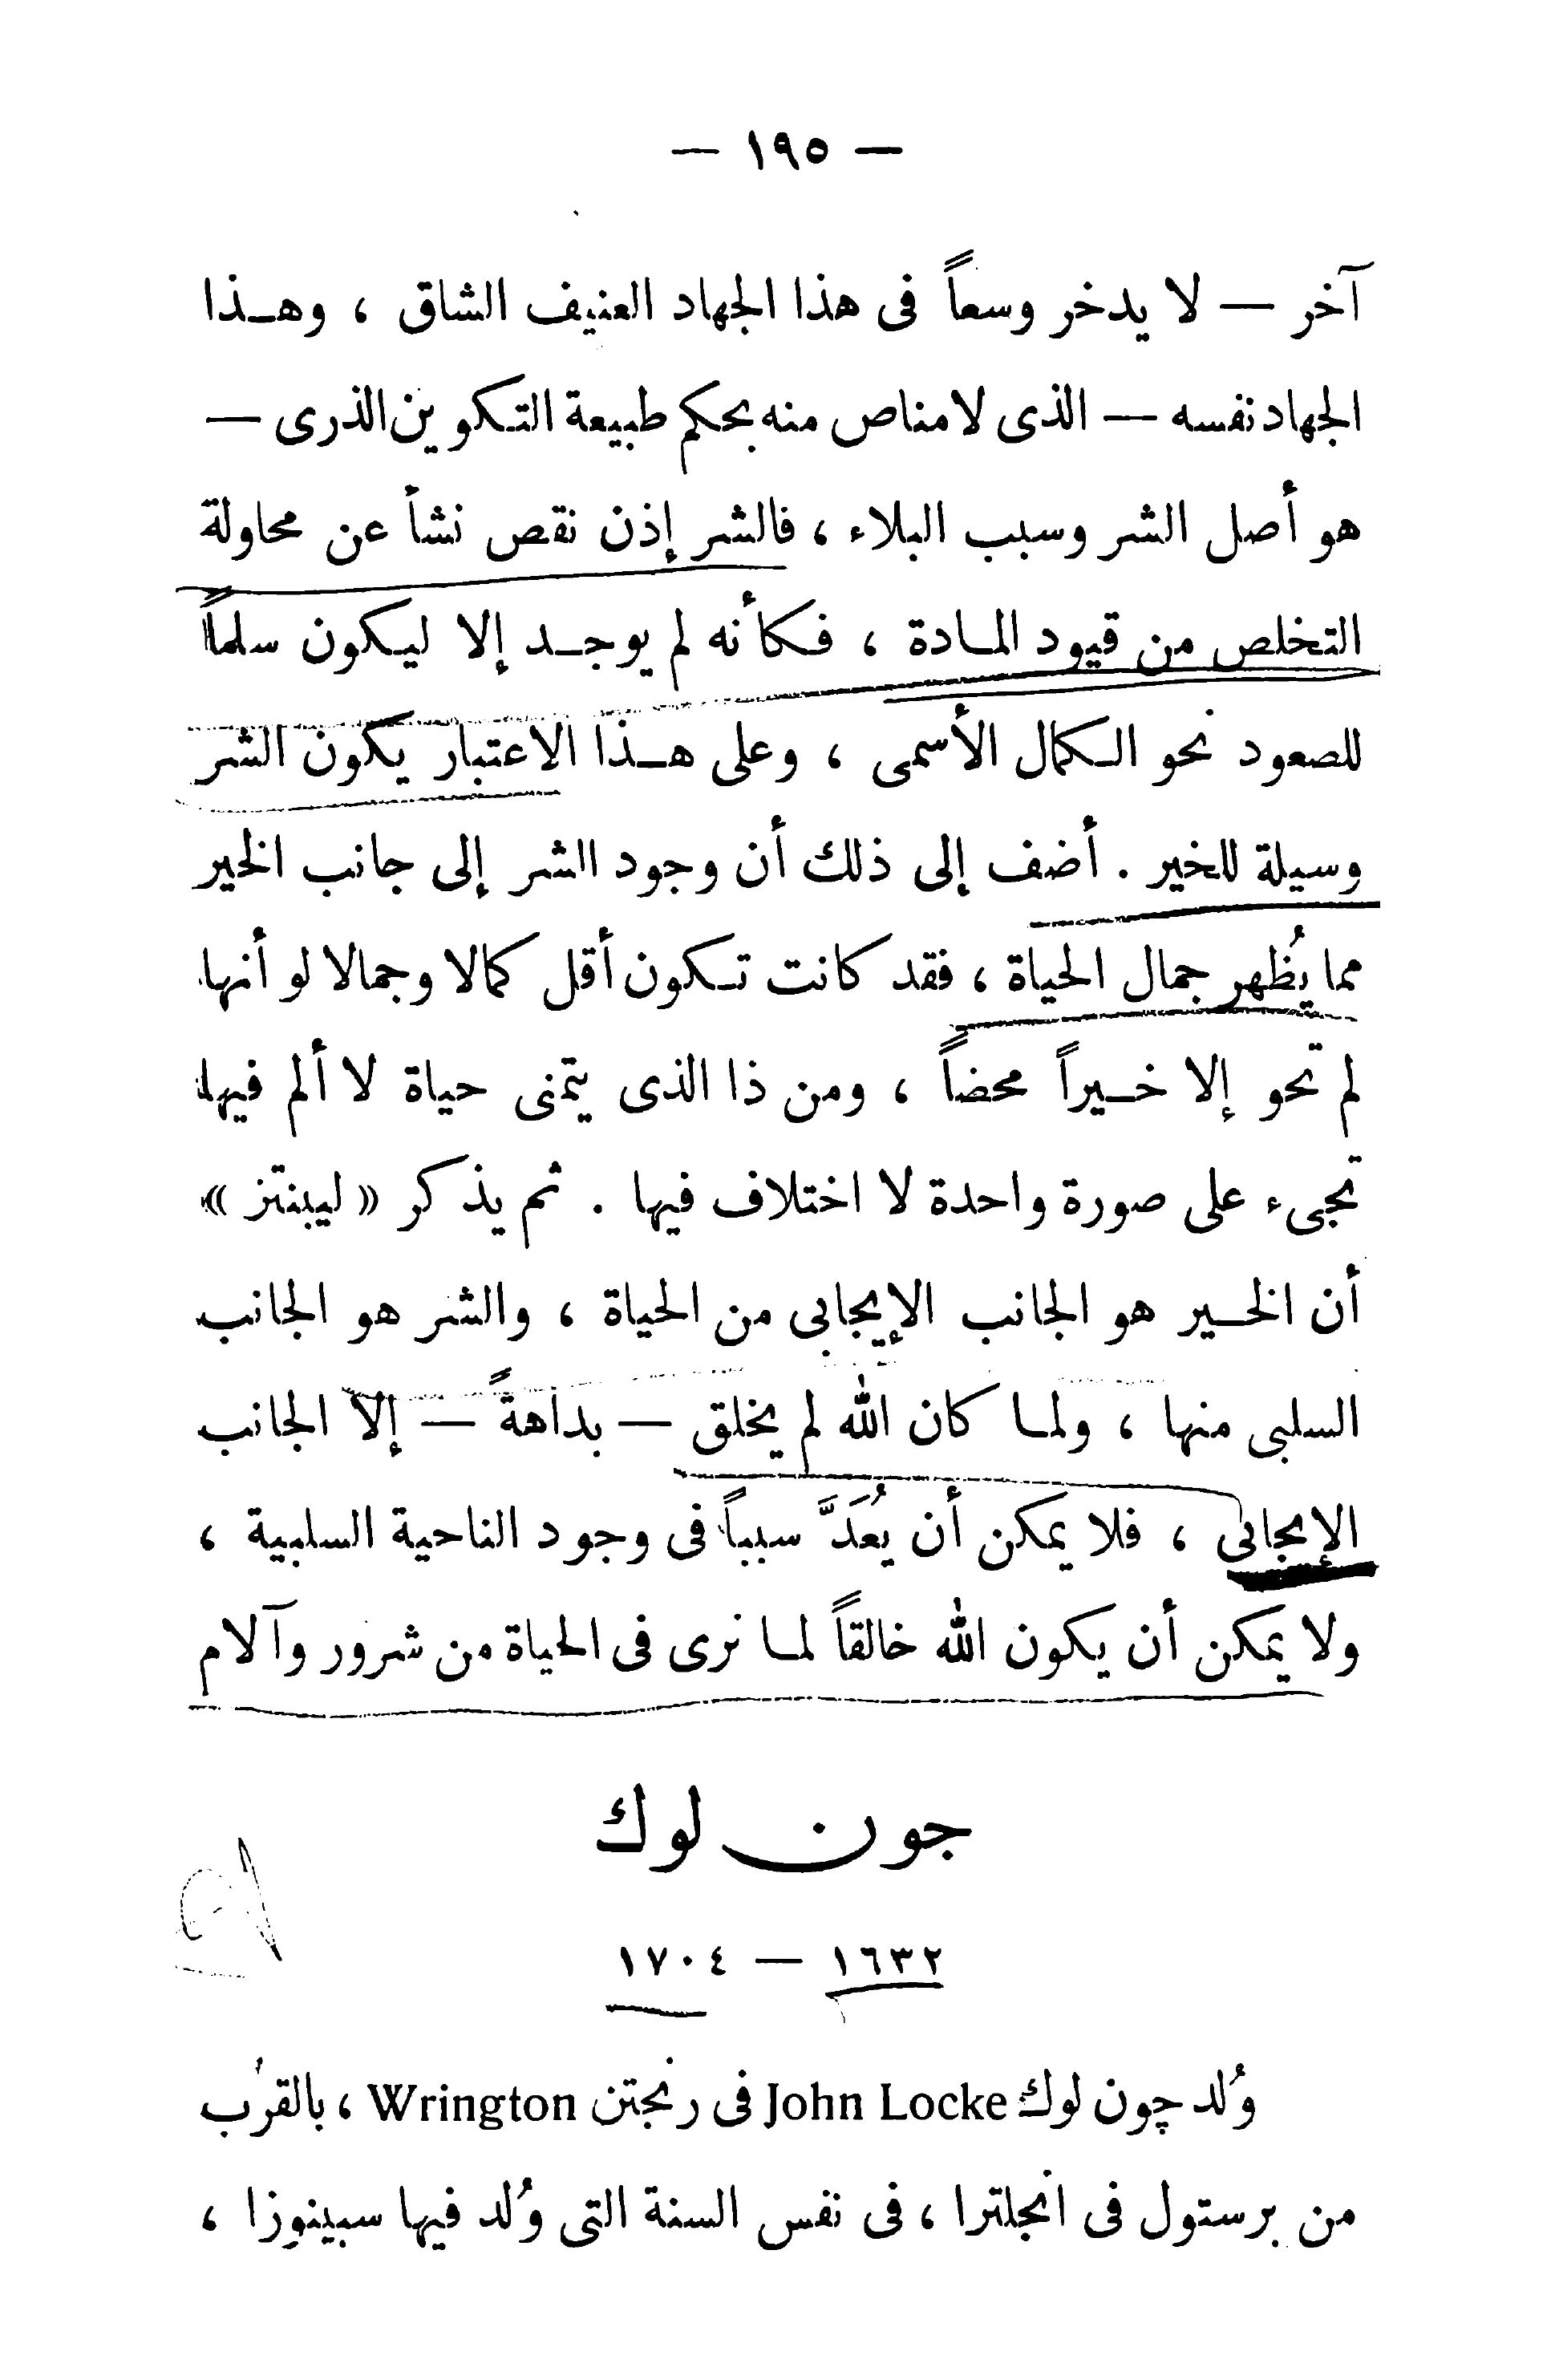 — ١٩٥ —
آخر — لا يدخر وسعاً فى هذا الجهاد العنيف الشاق ، وهـذا
الجهاد نفسه — الذى لا مناص منه بحكم طبيعة التكوين الذرى —
هو أصل الشر وسبب البلاء ، فالشر إذن نقص نشأ عن محاولة
التخلص من قيود المـادة ، فكأنه لم يوجـد إلا ليكون سلماً
للصعود نحو الـكمال الأسمى ، وعلى هـذا الاعتبار يكون الشر
وسيلة للخير . أضف إلى ذلك أن وجود الشر إلى جانب الخير
مما يُظهر جمال الحياة ، فقد كانت تـكون أقل كمالا وجمالا لو أنها
لم تحو إلا خـيراً محضاً ، ومن ذا الذى يتمنى حياة لا ألم فيها
تجىء على صورة واحدة لا اختلاف فيها . ثم يذكر « ليبنتز »
أن الخـير هو الجانب الإيجابى من الحياة ، والشر هو الجانب
السلبى منها ، ولمـا كان الله لم يخلق — بداهةً — إلا الجانب
الإيجابى ، فلا يمكن أن يُعَدَّ سبباً فى وجود الناحية السلبية ،
ولا يمكن أن يكون الله خالقاً لمـا نرى فى الحياة من شرور وآلام
جون لوك
١٦٣٢ — ١٧٠٤
وُلد چون لوك John Locke فى رنجتن Wrington ، بالقرُب
من برستول فى انجلترا ، فى نفس السنة التى وُلد فيها سبينوزا ،